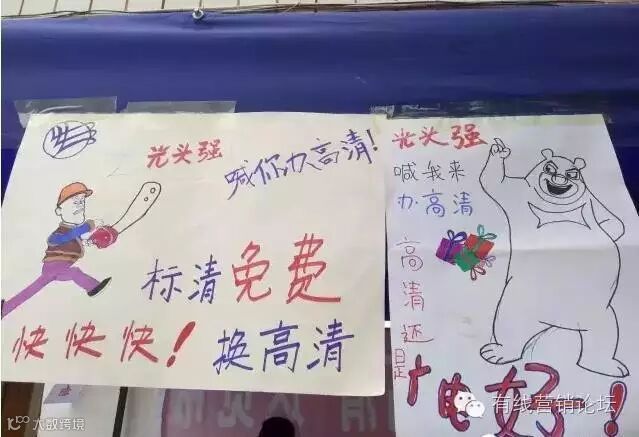 光头强
喊你办高清!
标清免费
快快快! 换高清
光头强
喊我来
办高清
高清还是
广电好了!
有线营销论坛
大数跨境